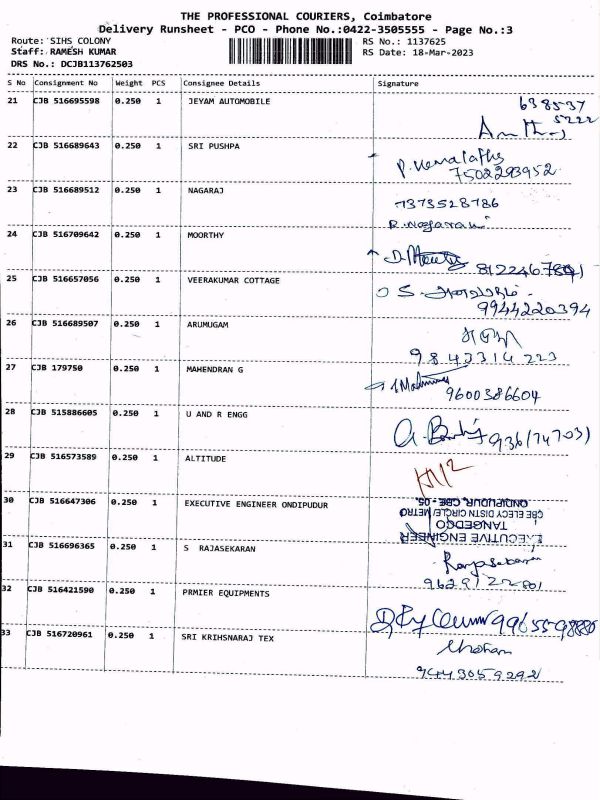 THE PROFESSIONAL COURIERS, Coimbatore
Delivery Runsheet - PCO - Phone No.:0422-3505555 - Page No.:3
Route: SIHS COLONY
RS No.: 1137625
Staff: RAMESH KUMAR
RS Date: 18-Mar-2023
DRS No.: DCJB113762503
S No Consignment No Weight PCS Consignee Details Signature
21 CJB 516695598 0.250 1 JEYAM AUTOMOBILE 638537
5222
22 CJB 516689643 0.250 1 SRI PUSHPA
7502293952
23 CJB 516689512 0.250 1 NAGARAJ 7373528786
R. Nagaraj
24 CJB 516709642 0.250 1 MOORTHY
25 CJB 516657056 0.250 1 VEERAKUMAR COTTAGE
9944220394
26 CJB 516689507 0.250 1 ARUMUGAM
9843314223
27 CJB 179750 0.250 1 MAHENDRAN G
9600386604
28 CJB 515886605 0.250 1 U AND R ENGG
29 CJB 516573589 0.250 1 ALTITUDE
30 CJB 516647306 0.250 1 EXECUTIVE ENGINEER ONDIPUDUR
EXECUTIVE ENGINEER
TANGEDCO
CBE ELECY DISTN CIRCLE/ METRO
ONDIPUDUR, CBE - 05.
31 CJB 516696365 0.250 1 S RAJASEKARAN Rajasekaran
32 CJB 516421590 0.250 1 PRMIER EQUIPMENTS
33 CJB 516720961 0.250 1 SRI KRIHSNARAJ TEX
9443059292